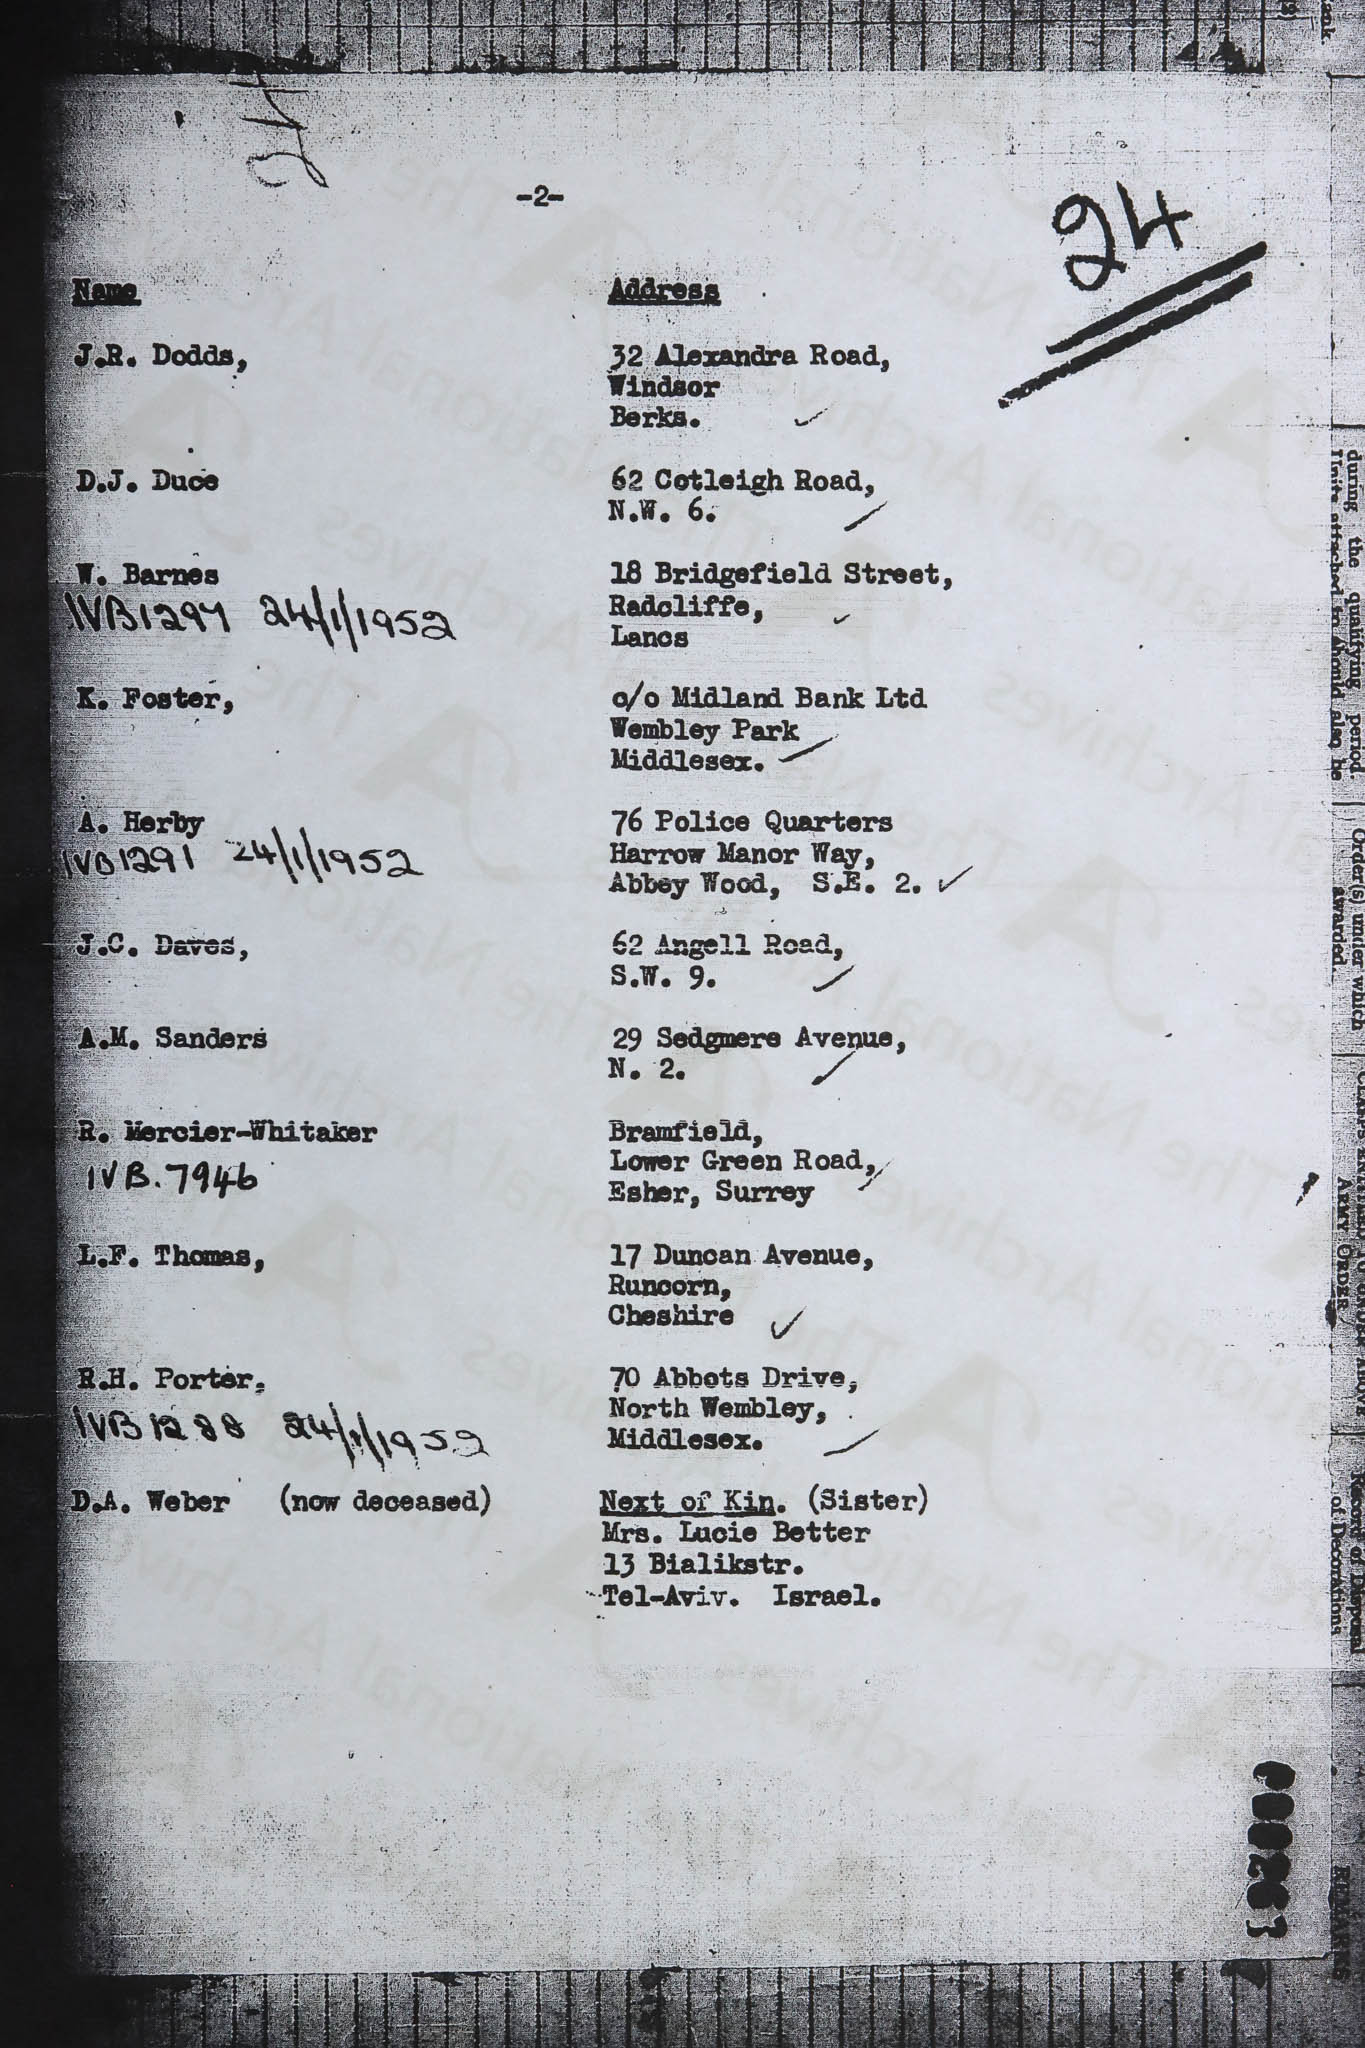 -2-
24
Name Address
J.R. Dodds, 32 Alexandra Road,
Windsor
Berks.
D.J. Duce 62 Cotleigh Road,
N.W. 6.
W. Barnes 18 Bridgefield Street,
IVB1297 24/1/1952 Radcliffe,
Lancs
K. Foster, c/o Midland Bank Ltd
Wembley Park
Middlesex.
A. Herby 76 Police Quarters
IVB1291 24/1/1952 Harrow Manor Way,
Abbey Wood, S.E. 2.
J.C. Daves, 62 Angell Road,
S.W. 9.
A.M. Sanders 29 Sedgmere Avenue,
N. 2.
R. Mercier-Whitaker Bramfield,
IVB.7946 Lower Green Road,
Esher, Surrey
L.F. Thomas, 17 Duncan Avenue,
Runcorn,
Cheshire
R.H. Porter, 70 Abbots Drive,
IVB1288 24/1/1952 North Wembley,
Middlesex.
D.A. Weber (now deceased) Next of Kin. (Sister)
Mrs. Lucie Better
13 Bialikstr.
Tel-Aviv. Israel.
during the qualifying period.
Units attached to should also be
Order(s) under which
awarded.
ARMY ORDER
Record of Disposal
of Decorations
The National Archives